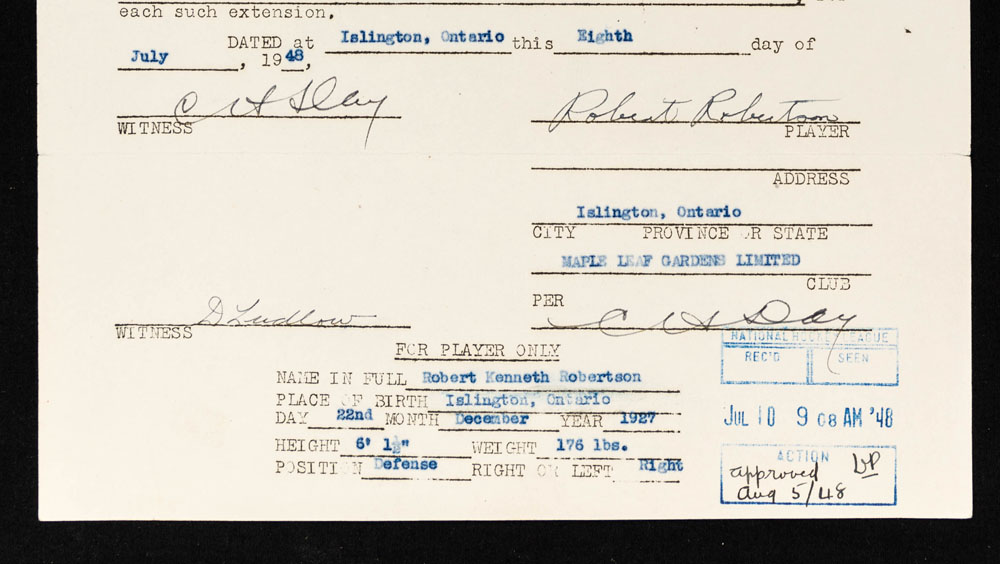 each such extension.
DATED at Islington, Ontario this Eighth day of
July, 1948,
C H Day Robert Robertson
WITNESS PLAYER
ADDRESS
Islington, Ontario
CITY PROVINCE OR STATE
MAPLE LEAF GARDENS LIMITED
CLUB
PER
D Ludlow C H Day
WITNESS
NATIONAL HOCKEY LEAGUE
FOR PLAYER ONLY
REC'D SEEN
NAME IN FULL Robert Kenneth Robertson
PLACE OF BIRTH Islington, Ontario
DAY 22nd MONTH December YEAR 1927
JUL 10 9 08 AM '48
HEIGHT 6' 1½" WEIGHT 176 lbs.
ACTION
POSITION Defense RIGHT OR LEFT Right
approved
Aug 5/48